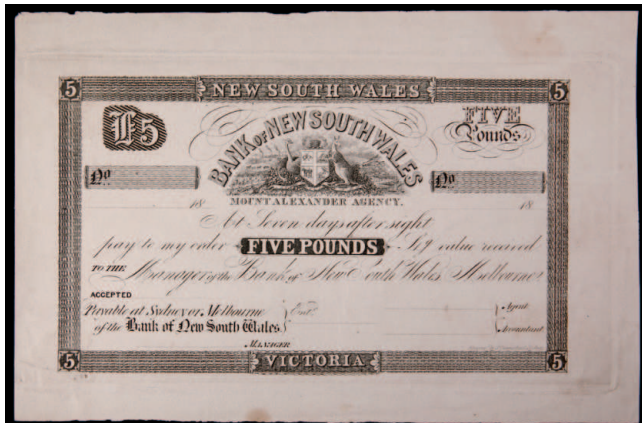 5 NEW SOUTH WALES 5
£5
FIVE
Pounds
BANK OF NEW SOUTH WALES
No
No
18
MOUNT ALEXANDER AGENCY.
18
At Seven days after sight
pay to my order FIVE POUNDS for value received
TO THE Manager of the Bank of New South Wales Melbourne
ACCEPTED
Payable at Sydney or Melbourne
Ent.
Agent
of the Bank of New South Wales
Accountant
MANAGER
5 VICTORIA 5